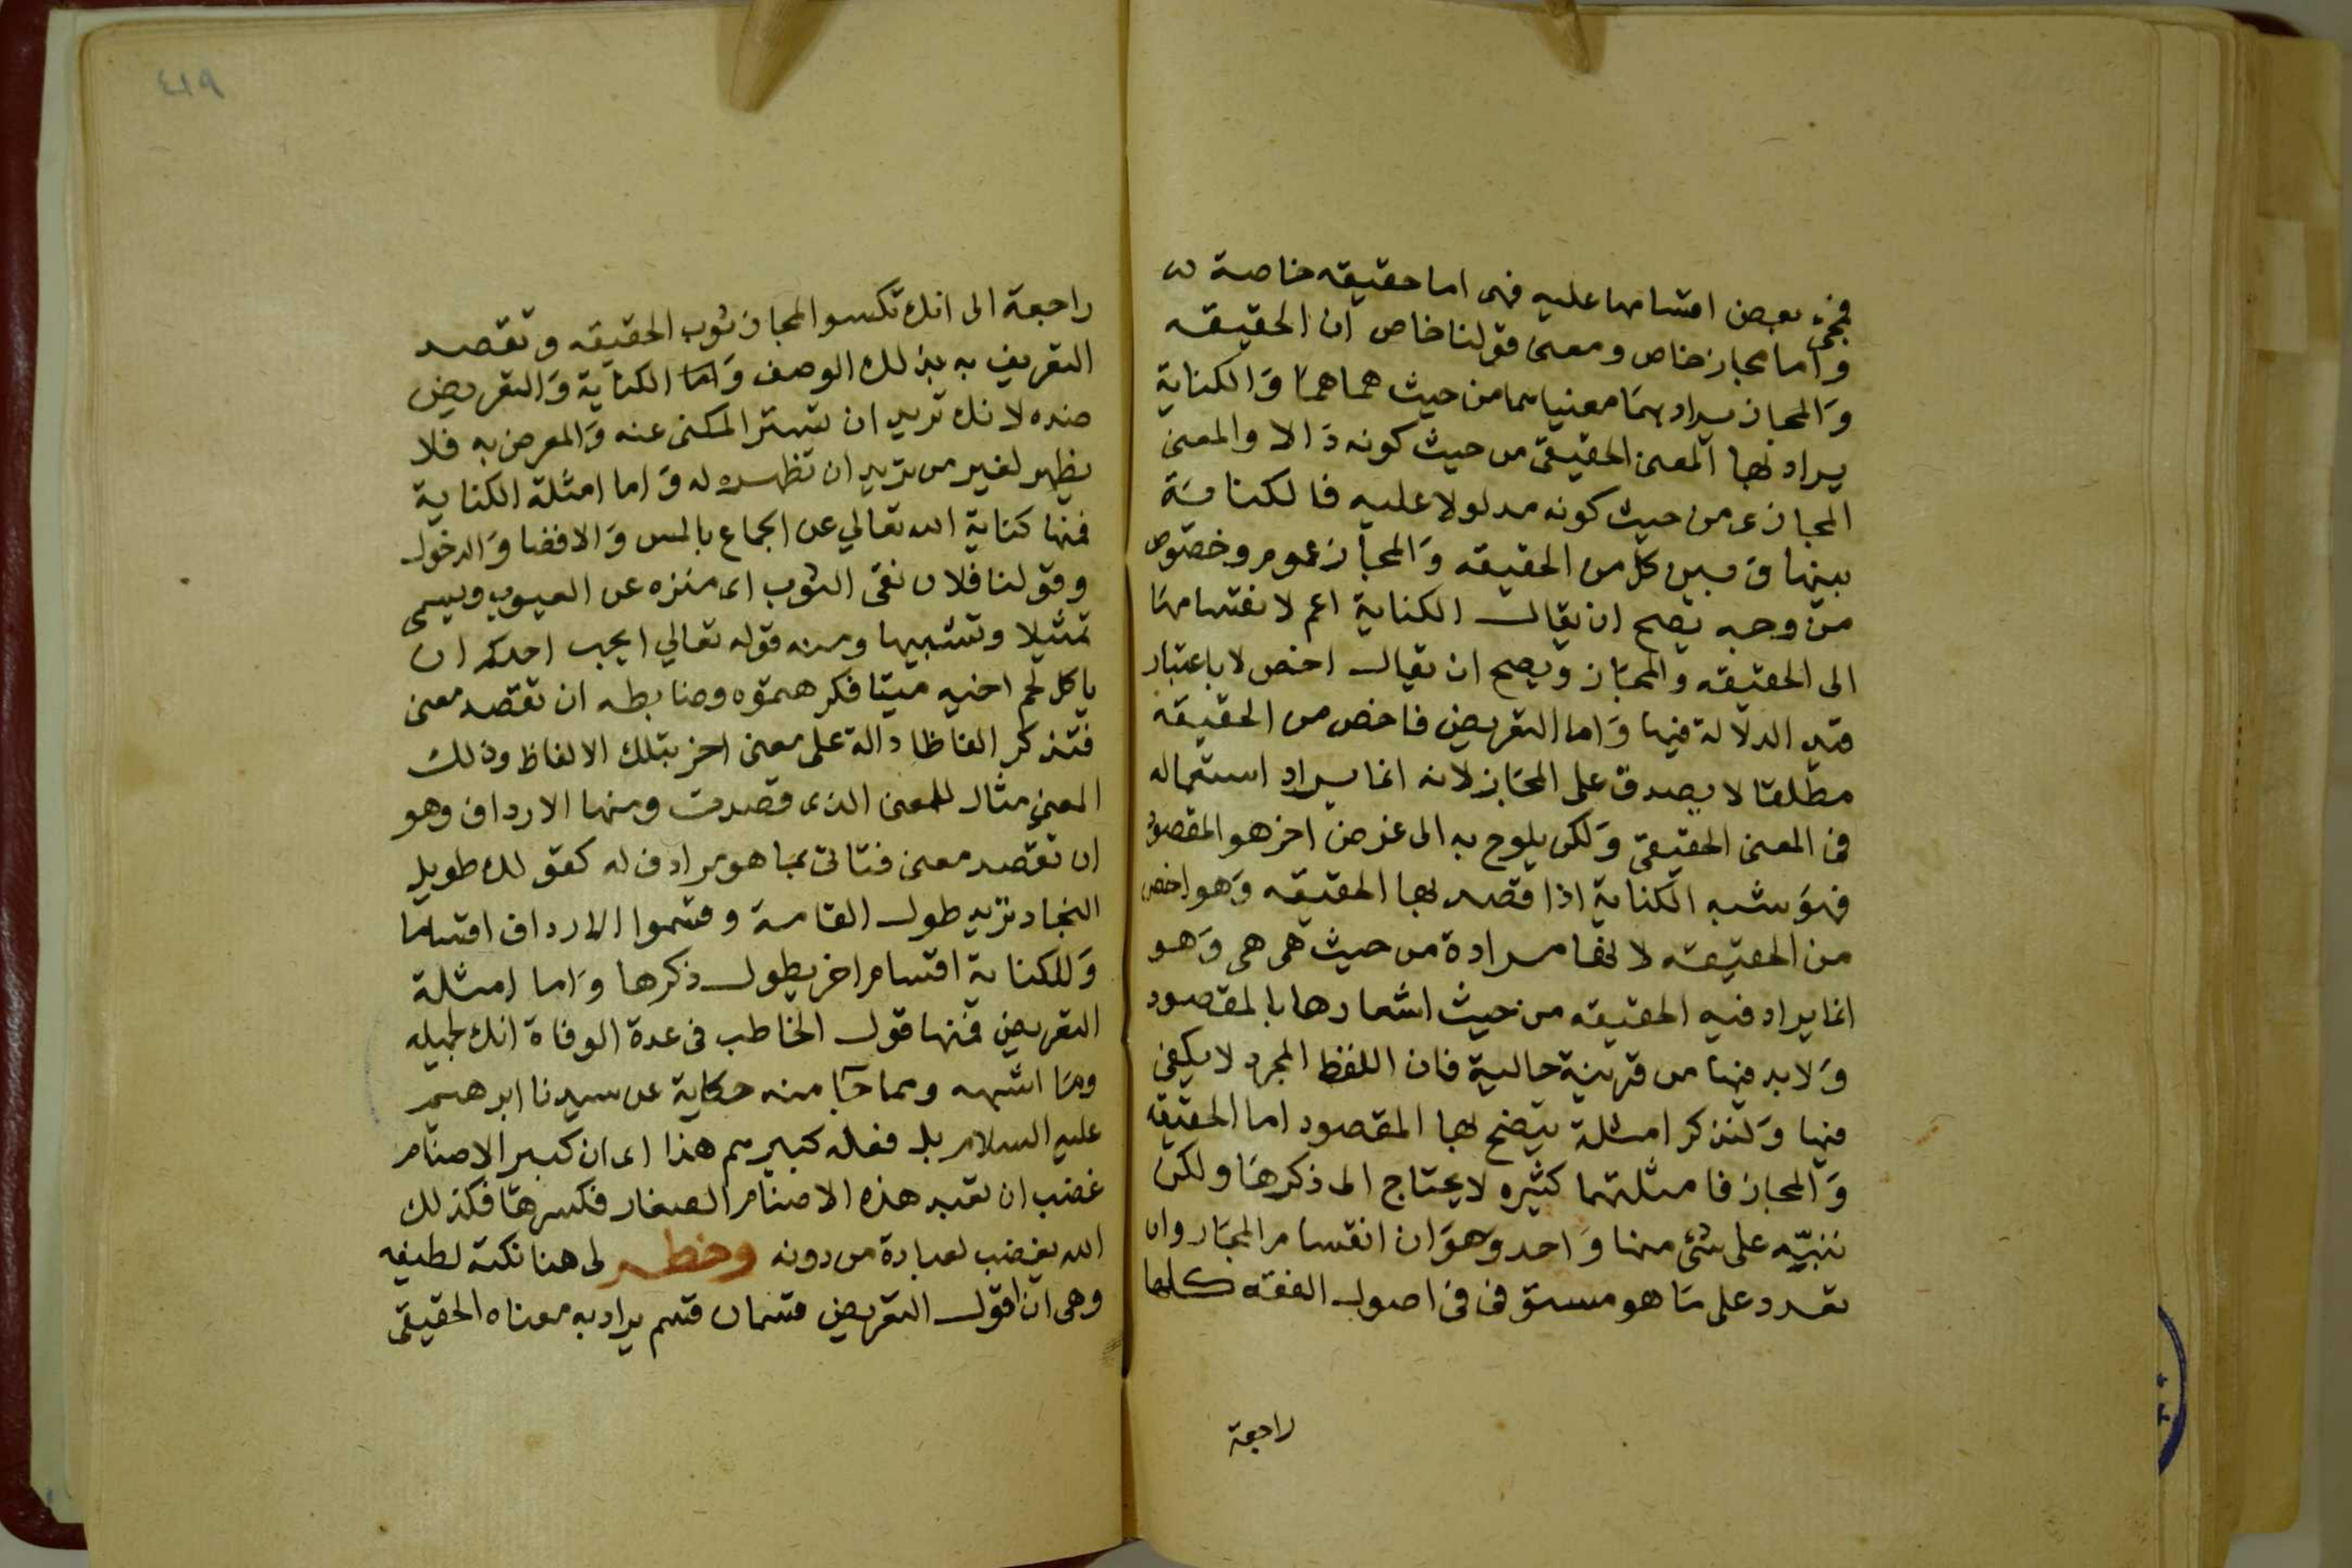 فنجئ بعض اقسامها عليه فهى اما حقيقه خاصة
واما مجاز خاص ومعنى قولنا خاص ان الحقيقه
والمجاز يراد بهما معنياهما من حيث هما هما والكناية
يراد بها المعنى الحقيقى من حيث كونه دالا والمعنى
المجازى من حيث كونه مدلولا عليه فالكناية
بينها وبين كل من الحقيقه والمجاز عموم وخصوص
من وجه يصح ان يقال الكناية اعم لانقسامها
الى الحقيقه والمجاز ويصح ان يقال اخص لا باعتبار
قيد الدلالة فيها واما التعريض فاخص من الحقيقة
مطلقا لا يصدق على المجاز لانه انما يراد استعماله
فى المعنى الحقيقى ولكن يلوح به الى غرض اخر هو المقصود
فهو يشبه الكناية اذا قصد بها الحقيقه وهو اخص
من الحقيقه لانها مرادة من حيث هى هى وهو
انما يراد فيه الحقيقه من حيث اشعارها بالمقصود
ولابد فيها من قرينة حالية فان اللفظ المجرد لا يكفى
فيها ولنذكر امثلة يتضح بها المقصود اما الحقيقه
والمجاز فامثلتهما كثيره لا يحتاج الى ذكرها ولكن
ننبّه على شئ منها واحد وهو ان انقسام المجاز وان
تعدد على ما هو مستوفى فى اصول الفقه كلها
راجعة
راجعة الى انك تكسو المجاز ثوب الحقيقه وتقصد
التعريف به بذلك الوصف واما الكناية والتعريض
ضده لانك تريد ان تستر المكنى عنه والمعرض به فلا
يظهر لغير من تريد ان تظهره له واما امثلة الكناية
فمنها كناية الله تعالي عن الجماع بالمس والافضا والدخول
وقولنا فلان نقى الثوب اى منزه عن العيوب ويسمى
تمثيلا وتشبيها ومنه قوله تعالي ايحب احدكم ان
ياكل لحم اخيه ميتا فكرهتموه وضابطه ان تقصد معنى
فتذكر الفاظا دالة على معنى اخر بتلك الالفاظ وذلك
المعنى مثال للمعنى الذى قصدت ومنها الارداف وهو
ان تقصد معنى فتاتى بما هو مرادف له كقولك طويل
النجاد تريد طول القامة وقسموا الارداف اقساما
وللكناية اقسام اخر يطول ذكرها واما امثلة
التعريض فمنها قول الخاطب فى عدة الوفاة انك لجميله
وما اشبهه ومما جا منه حكاية عن سيدنا ابرهيم
عليه السلام بل فعله كبيرهم هذا اى ان كبير الاصنام
غضب ان تعبد هذه الاصنام الصغار فكسرها فكذلك
الله يغضب لعبادة من دونه وخطر لى هنا نكتة لطيفه
وهى ان اقول التعريض قسمان قسم يراد به معناه الحقيقى
٤١٩